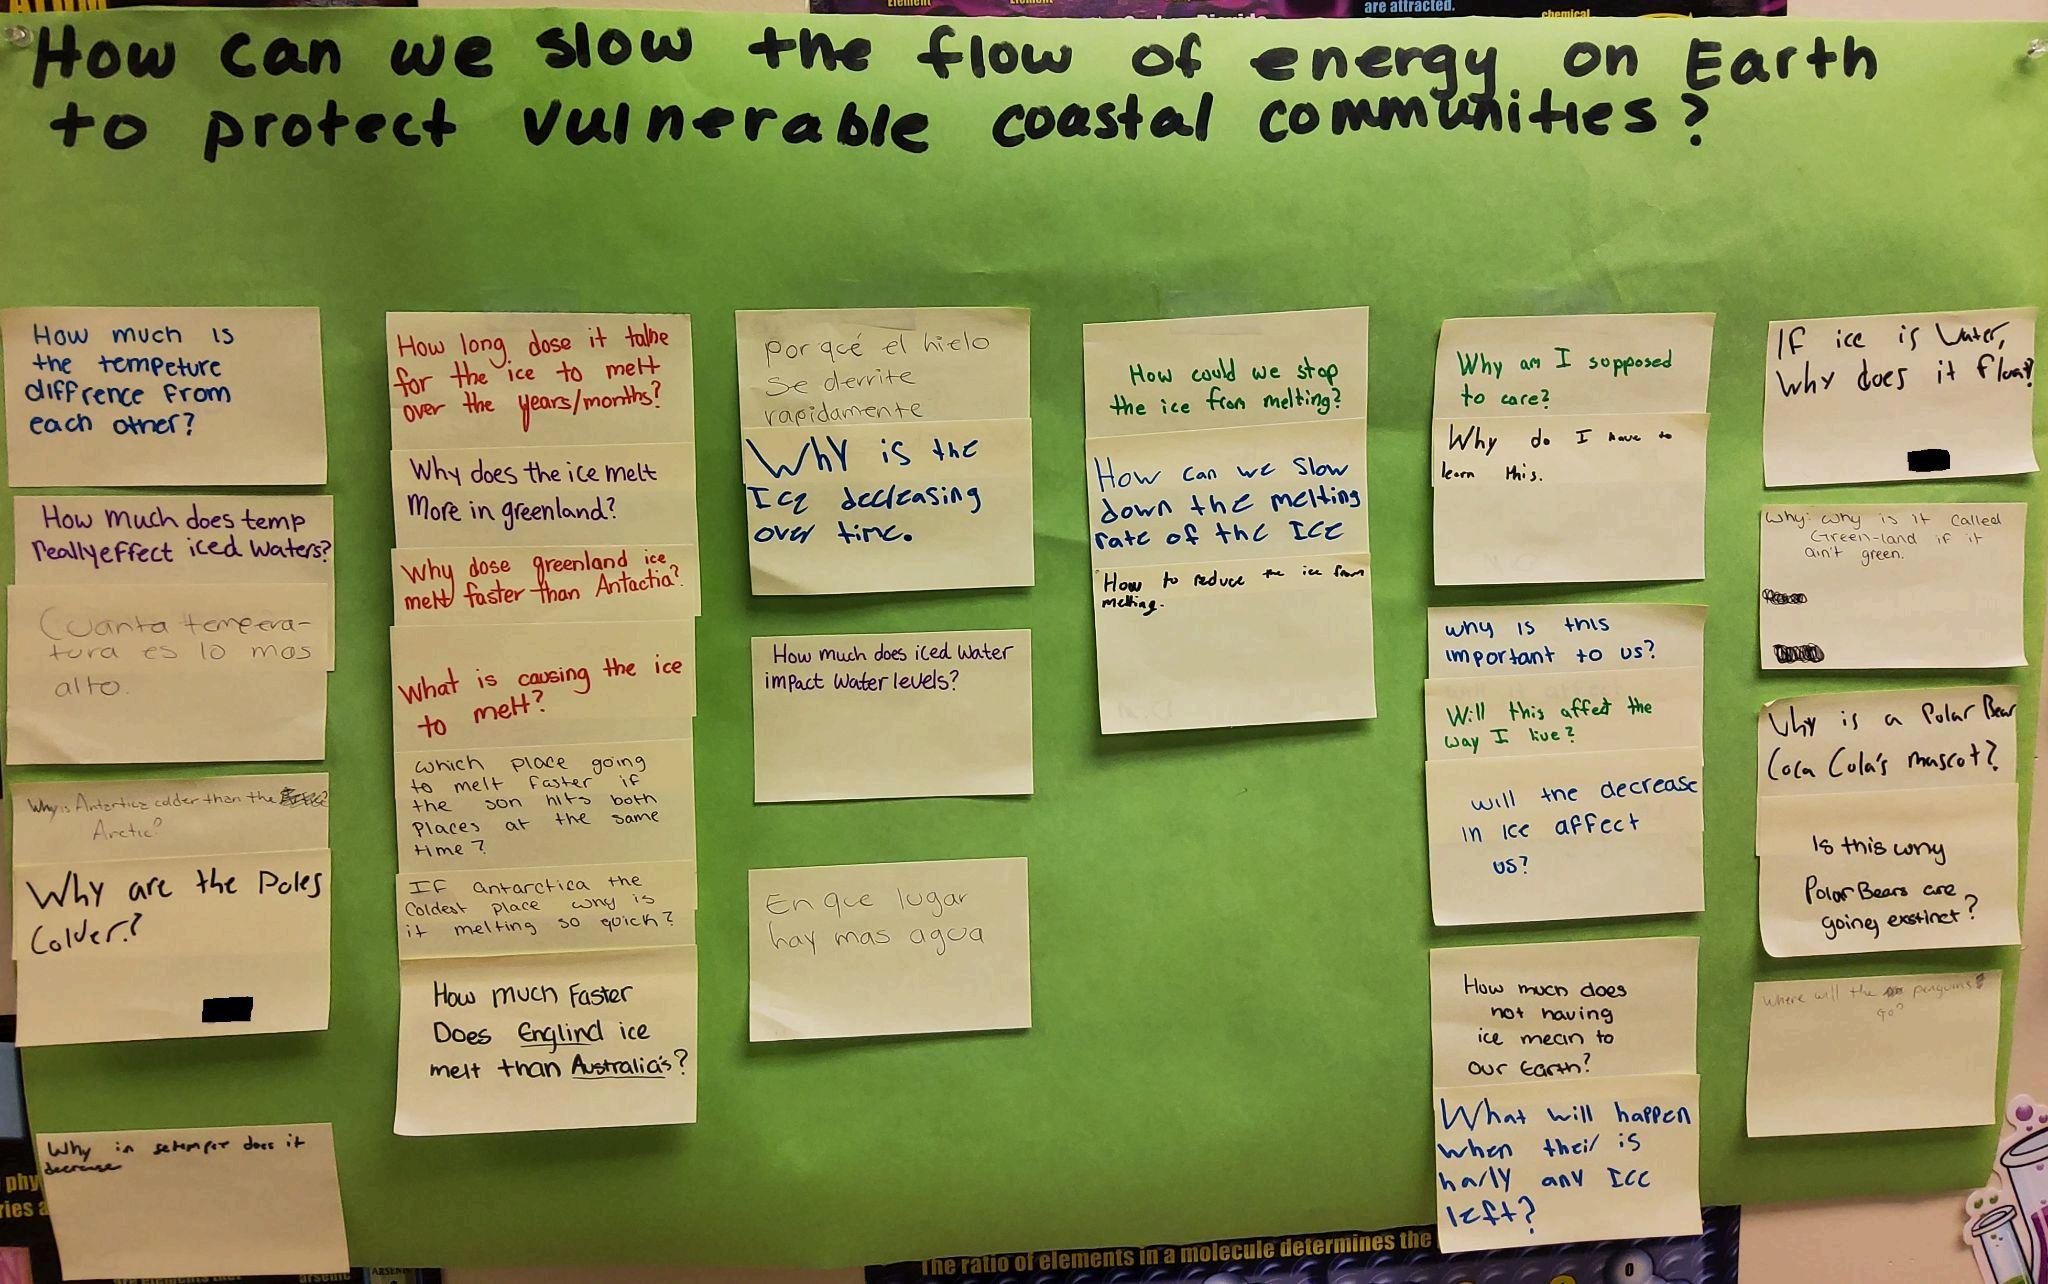 How can we slow the flow of energy on Earth
to protect vulnerable coastal communities?
How much is
the tempeture
diffrence from
each other?
How much does temp
really effect iced waters?
Cuanta tempera-
tura es lo mas
alto.
Why is Antartica colder than the
Arctic?
Why are the Poles
Colder?
Why in setemper does it
decrease
How long dose it take
for the ice to melt
over the years/months?
Why does the ice melt
More in greenland?
Why dose greenland ice
melt faster than Antactia?
What is causing the ice
to melt?
which place going
to melt faster if
the son hits both
places at the same
time?
If antarctica the
coldest place why is
it melting so quick?
How much Faster
Does Englind ice
melt than Australia's?
por qué el hielo
se derrite
rapidamente
Why is the
Ice decreasing
over time.
How much does iced water
impact water levels?
En que lugar
hay mas agua
How could we stop
the ice from melting?
How can we slow
down the melting
rate of the Ice
How to reduce the ice from
melting.
Why am I supposed
to care?
Why do I have to
learn this.
why is this
important to us?
Will this affect the
way I live?
will the decrease
in ice affect
us?
How much does
not having
ice mean to
our Earth?
What will happen
when their is
harly any Ice
left?
If ice is water,
why does it float?
Why: why is it called
Green-land if it
ain't green.
Why is a Polar Bear
Coca Cola's mascot?
Is this why
Polar Bears are
going exstinct?
where will the penguins
go?
Element
are attracted.
chemical
The ratio of elements in a molecule determines the